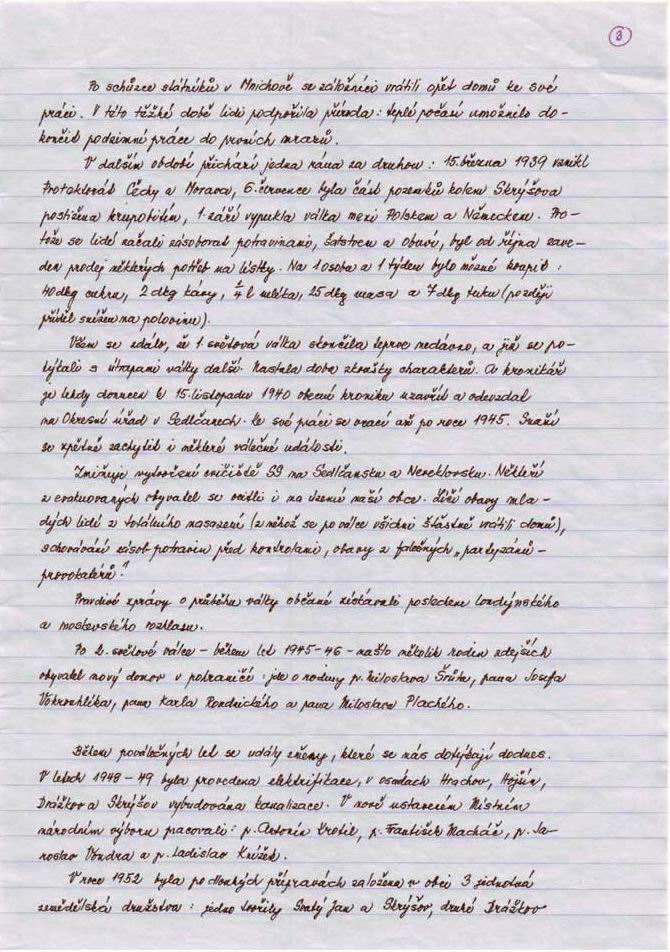 3
Po schůzce státníků v Mnichově se záložníci vrátili opět domů ke své
práci. V této těžké době lidi podpořila příroda: teplé počasí umožnilo do-
končit podzimní práce do prvních mrazů.
V dalším období přichází jedna rána za druhou: 15. března 1939 vznikl
Protektorát Čechy a Morava, 6. července byla část pozemků kolem Skrýšova
postižena krupobitím, 1. září vypukla válka mezi Polskem a Německem. Pro-
tože se lidé začali zásobovat potravinami, šatstvem a obuví, byl od října zave-
den prodej některých potřeb na lístky. Na 1 osobu a 1 týden bylo možné koupit:
40 dkg cukru, 2 dkg kávy, 1/4 l mléka, 25 dkg masa a 7 dkg tuku (později
příděl snížen na polovinu).
Všem se zdálo, že 1. světová válka skončila teprve nedávno, a již se po-
týkali s útrapami války další. Nastala doba zkoušky charakterů. A kronikář
je tehdy donucen k 15. listopadu 1940 obecní kroniku uzavřít a odevzdat
na Okresní úřad v Sedlčanech. Ke své práci se vrací až po roce 1945. Snaží
se zpětně zachytit i některé válečné události.
Zmiňuje vytvoření cvičiště SS na Sedlčansku a Neveklovsku. Někteří
z evakuovaných obyvatel se ocitli i na území naší obce. Líčí obavy mla-
dých lidí z totálního nasazení (z něhož se po válce všichni šťastně vrátili domů),
schovávání zásob potravin před kontrolami, obavy z falešných „partyzánů -
provokatérů".
Pravdivé zprávy o průběhu války občané získávali poslechem londýnského
a moskevského rozhlasu.
Po 2. světové válce - během let 1945-46 - našlo několik rodin zdejších
obyvatel nový domov v pohraničí: jde o rodiny p. Miloslava Šrůty, pana Josefa
Vokrouhlíka, pana Karla Rondnického a pana Miloslava Plachého.
Během poválečných let se udály změny, které se nás dotýkají dodnes.
V letech 1948-49 byla provedena elektrifikace, v osadách Hrachov, Hojšín,
Drážkov a Skrýšov vybudována kanalizace. V nově ustaveném Místním
národním výboru pracovali: p. Antonín Krotil, p. František Macháč, p. Ja-
roslav Vondra a p. Ladislav Knížek.
V roce 1952 byla po dlouhých přípravách založena v obci 3 jednotná
zemědělská družstva: jedno tvořily Svatý Jan a Skrýšov, druhé Drážkov